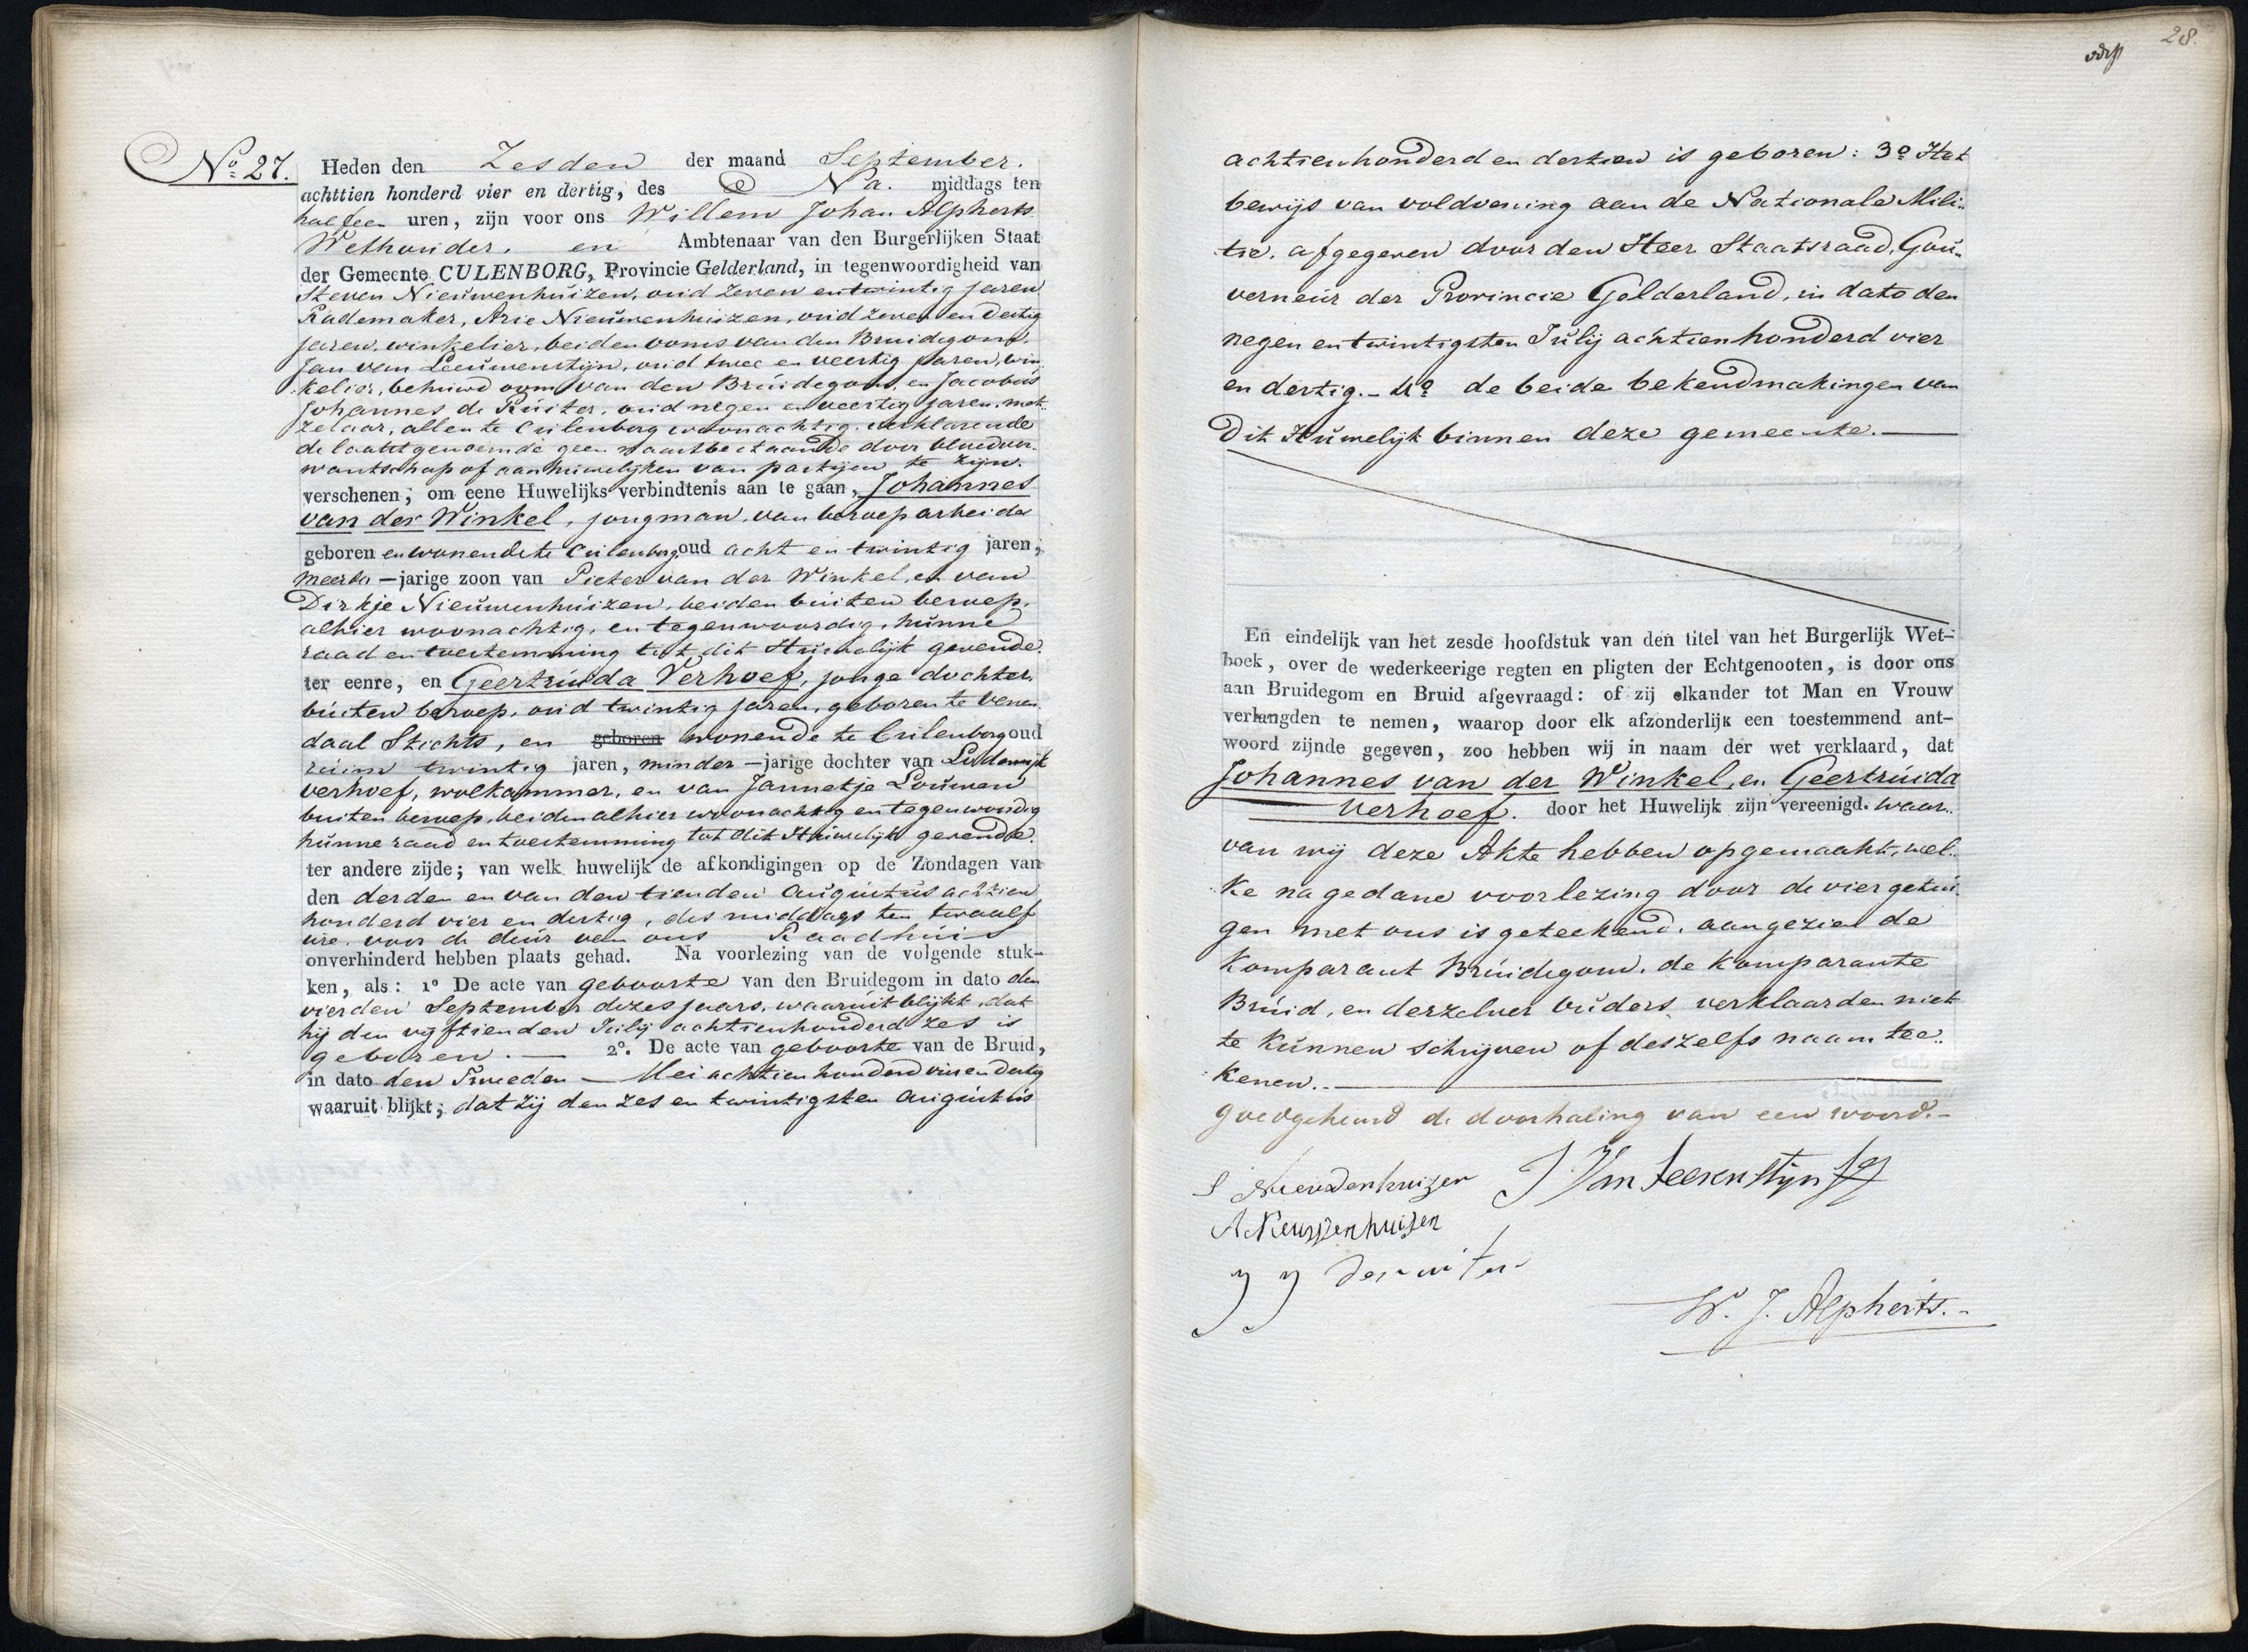 No. 27.
Heden den Zesden der maand September.
achttien honderd vier en dertig, des Na. middags ten
half een uren, zijn voor ons Willem Johan Alpherts
Wethouder, en Ambtenaar van den Burgerlijken Staat
der Gemeente CULENBORG, Provincie Gelderland, in tegenwoordigheid van
Steven Nieuwenhuizen, oud zeven en twintig jaren
Rademaker, Arie Nieuwenhuizen, oud zeven en dertig
jaren, winkelier, beiden ooms van den Bruidegom,
Jan van Leeuwenstijn, oud twee en veertig jaren, win
kelier, behuwd oom van den Bruidegom, en Jacobus
Johannes de Ruiter, oud negen en veertig jaren, met
zelaar, allen te Culenborg woonachtig, verklarende
de laatstgenoemde geen naastbestaande door bloedver-
wantschap of aanhuwelijken van partijen te zijn.
verschenen, om eene Huwelijks verbindtenis aan te gaan, Johannes
van der Winkel, jongman, van beroep arbeider
geboren en wonende te Culenborg oud acht en twintig jaren,
meerder-jarige zoon van Pieter van der Winkel, en van
Dirkje Nieuwenhuizen, beiden buiten beroep,
alhier woonachtig, en tegenwoordig, hunne
raad en toestemming tot dit Huwelijk gevende.
ter eenre, en Geertruida Verhoef, jonge dochter
buiten beroep, oud twintig jaren, geboren te Venen
daal Stichts, en geboren wonende te Culenborg oud
ruim twintig jaren, minder-jarige dochter van Lodewijk
verhoef, wolkammer, en van Jannetje Louwen
buiten beroep, beiden alhier woonachtig en tegenwoordig
hunne raad en toestemming tot dit Huwelijk gevende.
ter andere zijde; van welk huwelijk de afkondigingen op de Zondagen van
den derden en van den tienden Augustus achtien
honderd vier en dertig, des middags ten twaalf
ure voor de deur van ons Raadhuis
onverhinderd hebben plaats gehad. Na voorlezing van de volgende stuk-
ken, als: 1o De acte van geboorte van den Bruidegom in dato den
vierden September dezes jaars, waaruit blijkt, dat
hij den vyftienden Julij achtienhonderd zes is
geboren. — 2o. De acte van geboorte van de Bruid,
in dato den Tweeden — Mei achtien honderd vier en dertig
waaruit blijkt, dat zij den zes en twintigsten Augustus
28.
achtienhonderd en dertien is geboren: 3o Het
bewijs van voldoening aan de Nationale Mili..
tie, afgegeven door den Heer Staatsraad, Gou..
verneur der Provincie Gelderland, in dato den
negen en twintigsten Julij achtienhonderd vier
en dertig. - 4o de beide bekendmakingen van
Dit Huwelijk binnen deze gemeente. —
En eindelijk van het zesde hoofdstuk van den titel van het Burgerlijk Wet-
boek, over de wederkeerige regten en pligten der Echtgenooten, is door ons
aan Bruidegom en Bruid afgevraagd: of zij elkander tot Man en Vrouw
verlangden te nemen, waarop door elk afzonderlijk een toestemmend ant-
woord zijnde gegeven, zoo hebben wij in naam der wet verklaard, dat
Johannes van der Winkel, en Geertruida
Verhoef. door het Huwelijk zijn vereenigd. waar..
van wij deze Akte hebben opgemaakt, wel..
ke na gedane voorlezing door de vier getui
gen met ons is geteekend, aangezien de
Komparant Bruidegom, de Komparante
Bruid, en derzelver ouders verklaarden niet
te kunnen schrijven of deszelfs naam tee..
kenen. —
goedgekeurd de doorhaling van een woord. -
S Nieuwenhuizen J. Van Leeuwenstijn
A Neuwenhuizen
J J de ruiter
W. J. Alpherts. -